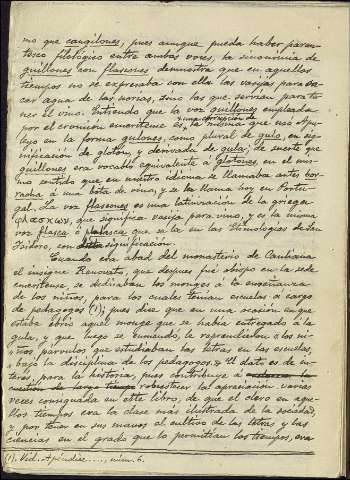 mo que cangilones, pues aunque pueda haber paren-
tesco filológico entre ambas voces, la sinonimia de
guillones con flascones, demuestra que en aquellos
tiempos no se expresaba con ella las vasijas para sa-
car agua de las norias, sino las que servían para te-
ner el vino. Entiendo que la voz guillones empleada
por el cronicón emeritense es una corrupción de la misma que usó Apu-
leyo en la forma gulones, como plural de gulo, en sig-
nificación de glotón y derivada de gula; de suerte que
guillones era vocablo equivalente á glotones, en el mis-
mo sentido que en nuestro idioma se llamaba antes bor-
racha á una bota de vino, y se la llama hoy en Portu-
gal. La voz flascones es una latinización de la griega
φλασκων, que significa vasija para vino, y es la misma
voz flasca ó flasca que se lee en las Etimologías de San
Isidoro, con significación.
Cuando era abad del monasterio de Cauliana
el insigne Renovato, que después fué obispo en la sede
emeritense, se dedicaban los monges á la enseñanza
de los niños, para los cuales tenían escuelas á cargo
de pedagogos (1); pues dice que en una ocasión en que
estaba ebrio aquel monge que se había entregado á la
gula, y que luego se enmendó, le reprendieron los ni-
ños párvulos que estudiaban las letras en las escuelas
bajo la disciplina de los pedagogos, dato es de in-
terés para la historia, pues contribuye á
robustecer la apreciación varias
veces consignada en este libro, de que el clero en aque-
llos tiempos era la clase más ilustrada de la sociedad,
y por tener en sus manos el cultivo de las letras y las
ciencias en el grado que lo permitían los tiempos, era
(1). Vid. Apéndice...., núm. 6.